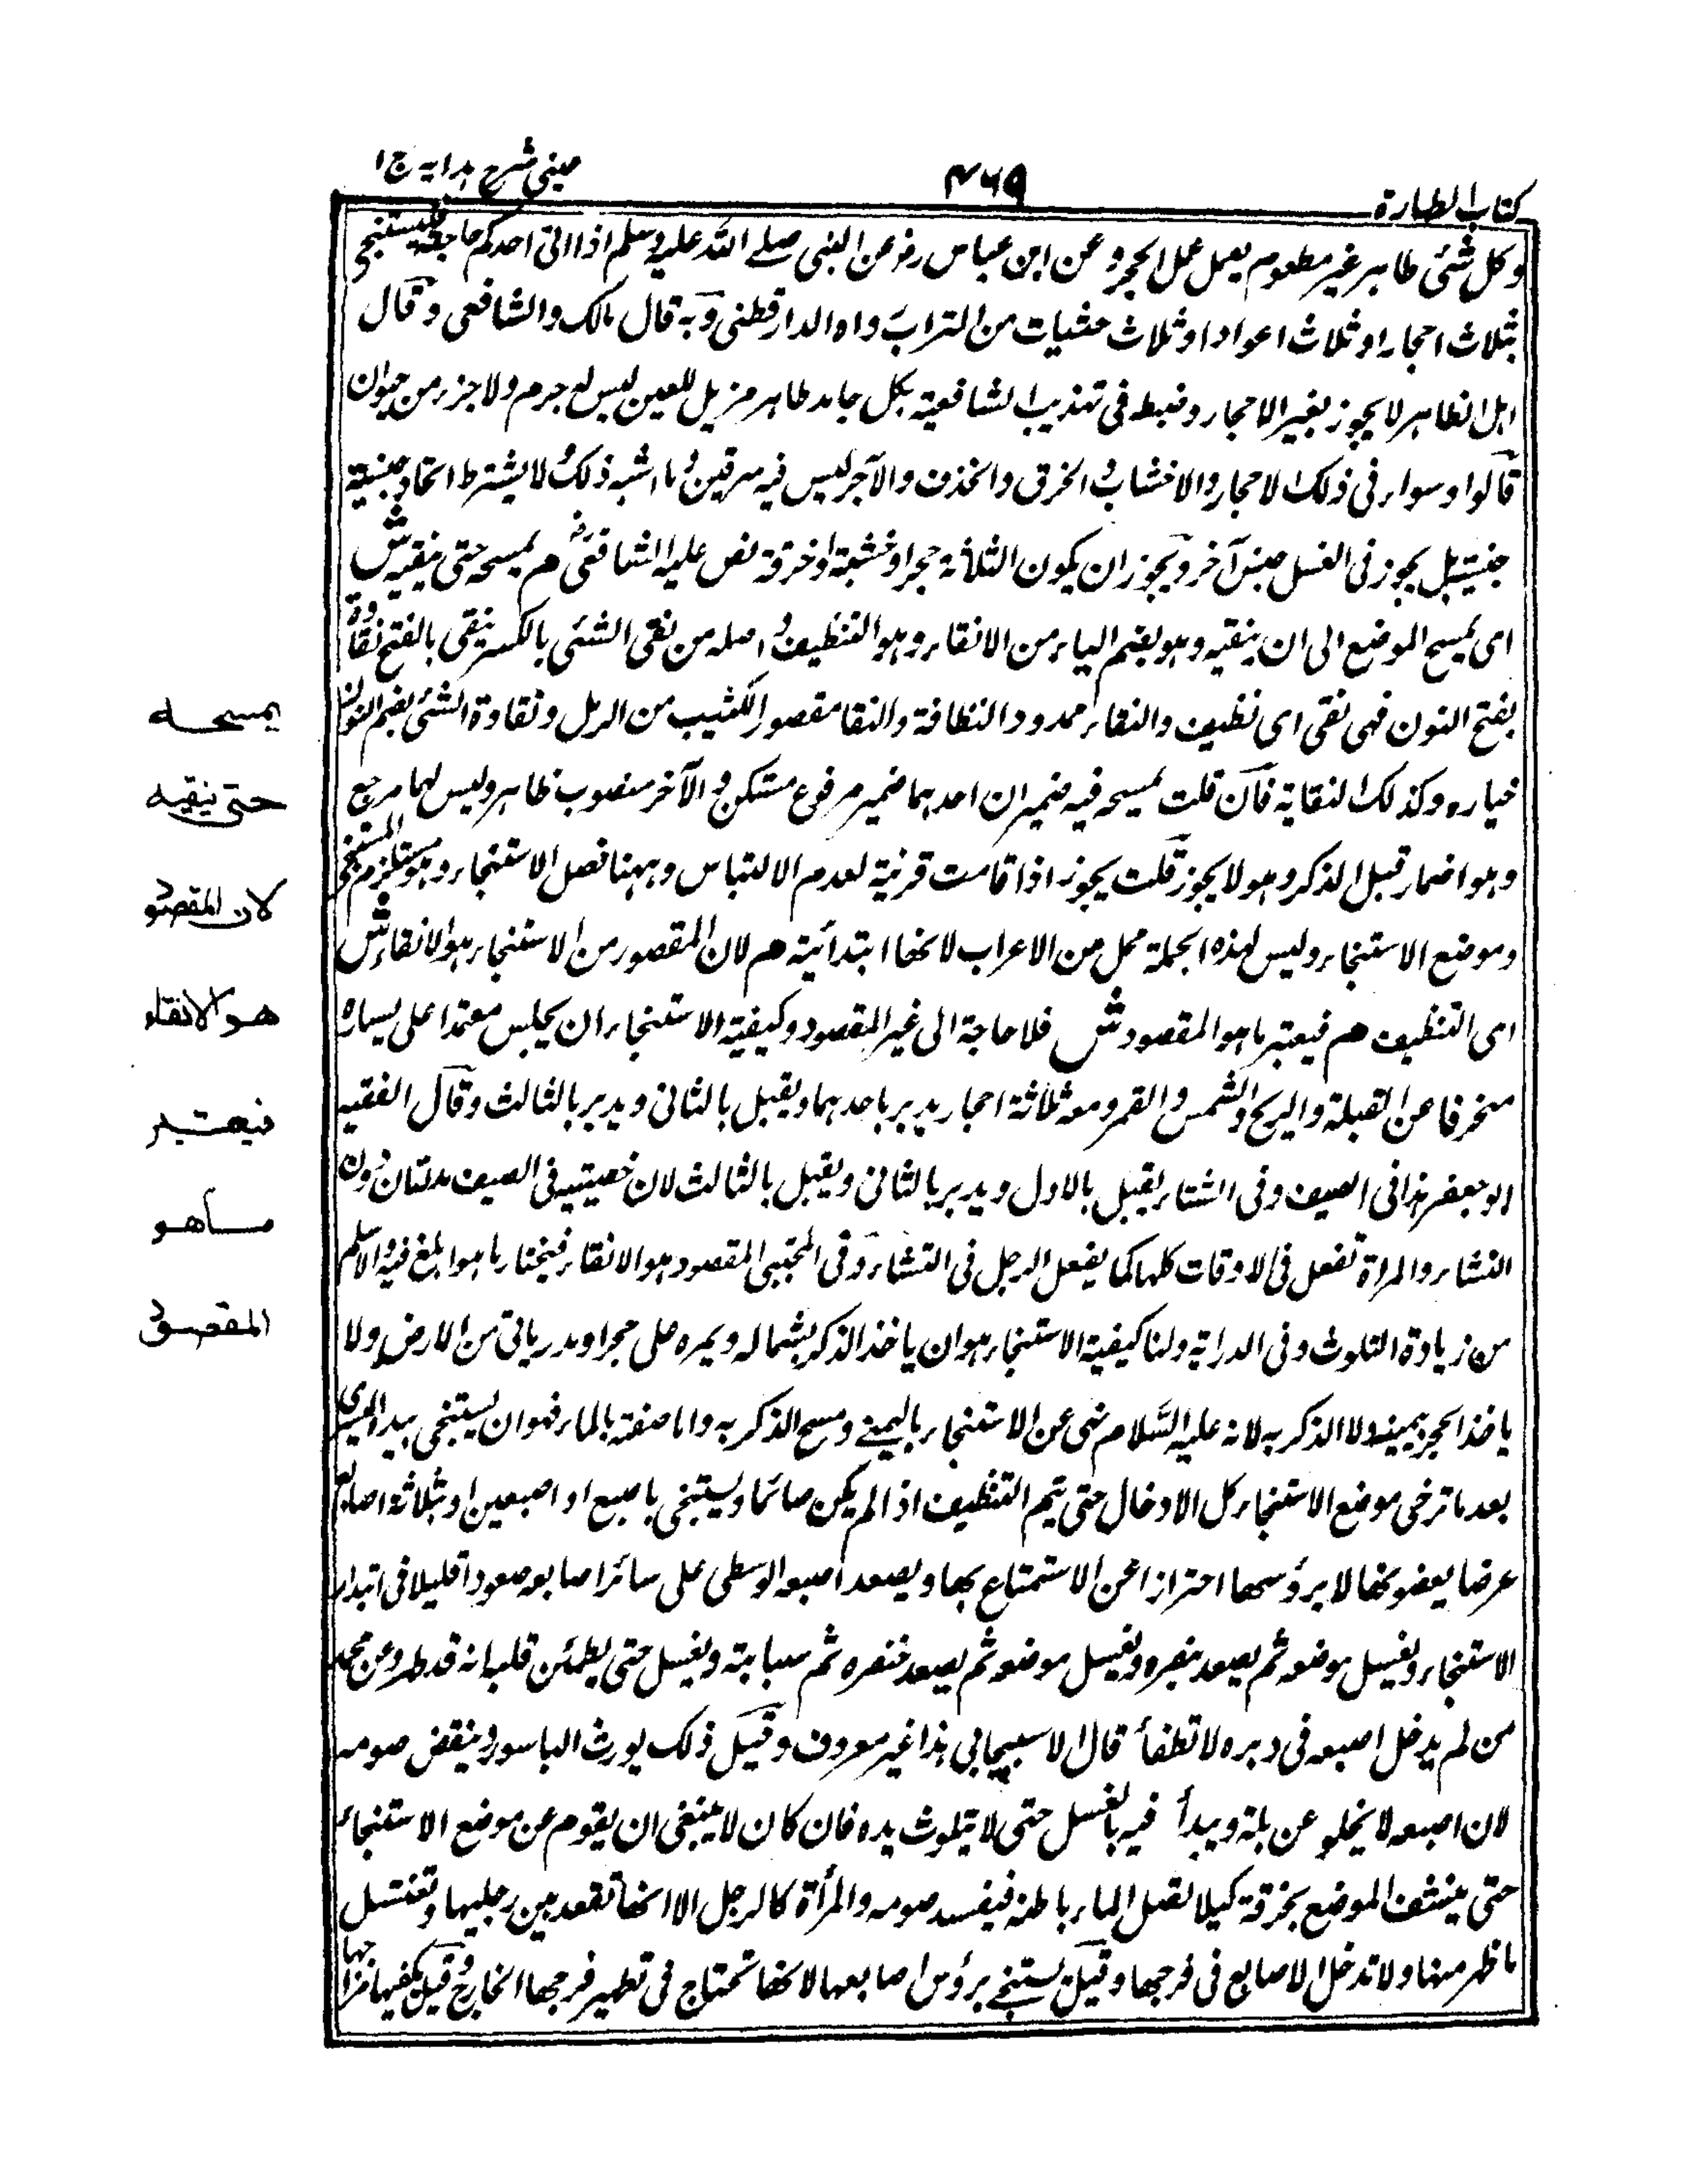 كتاب الطهارة
۴۶۹
عینی شرح ہدایہ ج ۱
وكل شئ طاہر غیر مطعوم یعمل عمل الحجر وعن ابن عباس رضؤ عن النبی صلے اللہ علیہ وسلم اذا اتی احدکم حاجتہ فلیستنجی
بثلاث احجار او ثلاث اعواد او ثلاث حثیات من التراب رواہ الدارقطنی وبہ قال مالک والشافعی وقال
اہل الظاہر لا یجوز بغیر الاحجار وضبطہ فی تہذیب الشافعیۃ بکل جامد طاہر مزیل للعین لیس لہ جرم ولا جزء من حیوان
قالوا وسواء فی ذلک الاحجار والاخشاب والخرق والخذف والآجر لیس فیہ سرقین وما اشبہ ذلک ولا یشترط اتحاد جنسیتہ
جنسیتہ بل یجوز فی الغسل جنس آخر ویجوز ان یکون الثلاثۃ حجرا وخشبۃ او خرقۃ نص علیہ الشافعیؒ م یمسحہ حتی ینقیہ ش
ای یمسح الموضع الی ان ینقیہ وہو بضم الیاء من الانقاء وہو التنظیف واصلہ من نقی الشئی بالکسر ینقی بالفتح نقاوۃ
بفتح النون فہی نقی ای نظیف والنقاء ممدود النظافۃ والنقا مقصور الکثیب من الرمل ونقاوۃ الشئ بضم النون
خیارہ وکذلک النقایۃ فان قلت یمسحہ فیہ ضمیران احدہما ضمیر مرفوع مستکن والآخر منصوب ظاہر ولیس لہما مرجع
وہو اضمار قبل الذکر وہو لا یجوز قلت یجوز اذا قامت قرینۃ لعدم الالتباس وہہنا فصل الاستنجاء وہو مستلزم المستنجی
وموضع الاستنجاء ولیس لہذہ الجملۃ محل من الاعراب لانہا ابتدائیۃ م لان المقصود من الاستنجاء ہو الانقاء ش
ای التنظیف م فیعتبر ما ہو المقصود ش فلا حاجۃ الی غیر المقصود وکیفیۃ الاستنجاء ان یجلس معتمدا علی یسارہ
منحرفا عن القبلۃ والریح والشمس والقمر ومعہ ثلاثۃ احجار یدبر باحدہما ویقبل بالثانی ویدبر بالثالث وقال الفقیہ
ابو جعفر ہذا فی الصیف وفی الشتاء یقبل بالاول ویدبر بالثانی ویقبل بالثالث لان خصیتیہ فی الصیف مدلتان دون
الشتاء والمراۃ تفعل فی الاوقات کلہا کما یفعل الرجل فی الشتاء وفی المجتبی المقصود ہو الانقاء فیختار ما ہو ابلغ فیہ والاسلم
من زیادۃ التلوث وفی الدرایۃ ولنا کیفیۃ الاستنجاء ہو ان یاخذ الذکر بشمالہ ویمرہ علی حجر او مدر یاتی من الارض ولا
یاخذ الحجر بیمینہ ولا الذکر بہ لانہ علیہ السلام نہی عن الاستنجاء بالیمنے ومسح الذکر بہ واما صفتہ بالماء فہو ان یستنجی بیدہ الیسری
بعد ما ترخی موضع الاستنجاء کل الادخال حتی یتم التنظیف اذا لم یکن صائما ویستنجی باصبع او اصبعین او بثلاثۃ اصابع
عرضا یعضونہا لا برؤسہا احترازا عن الاستمتاع بہا ویصعد اصبعہ الوسطی علی سائر اصابعہ صعودا قلیلا فی ابتداء
الاستنجاء ویغسل موضعہ ثم یصعد بنصرہ ویغسل موضعہ ثم یصعد خنصرہ ثم سبابتہ ویغسل حتی یطمئن قلبہ انہ قد طہر وعن محمد
من لم یدخل اصبعہ فی دبرہ لا تطفأ قال الاسبیجابی ہذا غیر معروف وقیل ذلک یورث الباسور وینقض صومہ
لان اصبعہ لا یخلو عن بلۃ ویبدأ فیہ بالغسل حتی لا یتلوث یدہ فان کان لا ینبغی ان یقوم عن موضع الاستنجاء
حتی ینشف الموضع بخرقۃ کیلا تصل الماء باطنہ فیفسد صومہ والمرأۃ کالرجل الا انہا تقعد بین رجلیہا وتغتسل
ما ظہر منہا ولا تدخل الاصابع فی فرجہا وقیل یستنجے برؤس اصابعہا لانہا تحتاج فی تطہیر فرجہا الخارج وقیل یکفیہا
یمسحه
حتی ینقیه
لان المقصود
هو الانقاء
فیعتبر
ماهو
المقصود